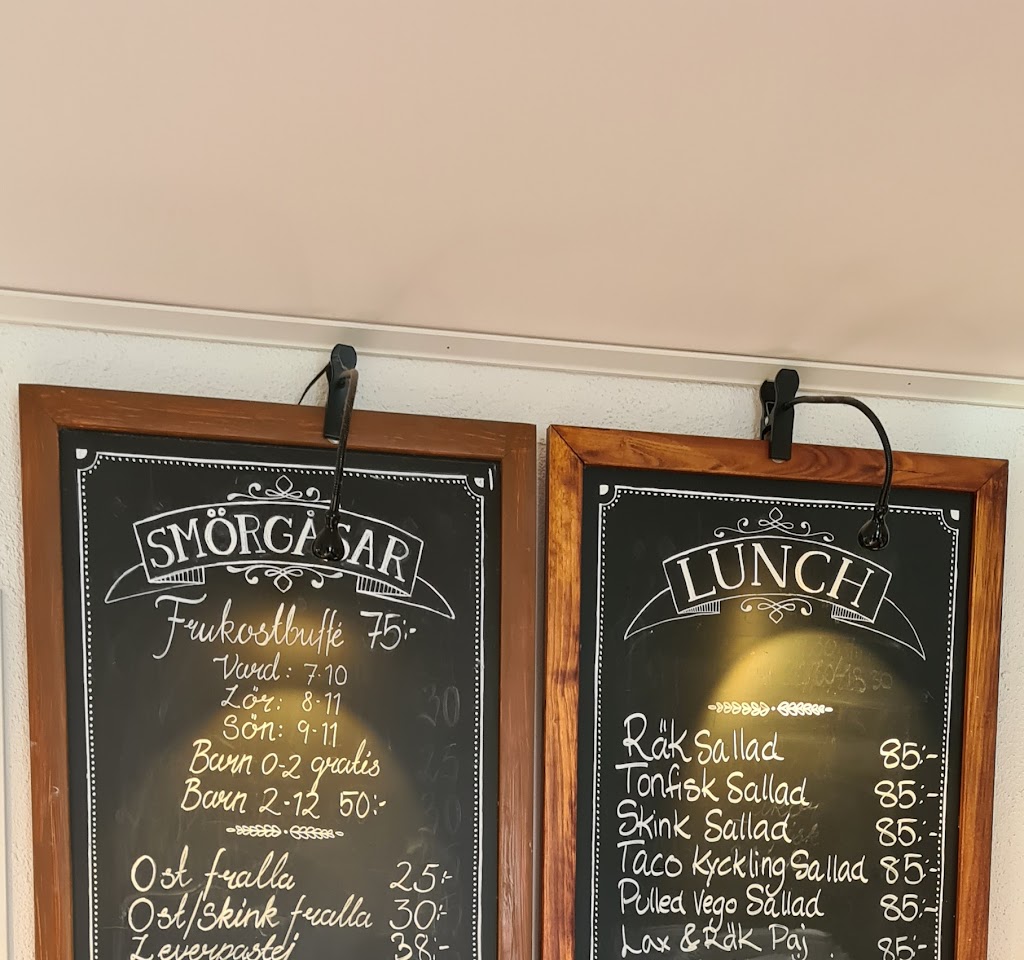 SMÖRGÅSAR
Frukostbuffé 75:-
Vard: 7-10
Lör: 8-11
Sön: 9-11
Barn 0-2 gratis
Barn 2-12 50:-
Ost fralla 25:-
Ost/Skink fralla 30:-
Leverpastej 38:-
LUNCH
Räk Sallad 85:-
Tonfisk Sallad 85:-
Skink Sallad 85:-
Taco Kyckling Sallad 85:-
Pulled Vego Sallad 85:-
Lax & Räk Paj 85:-